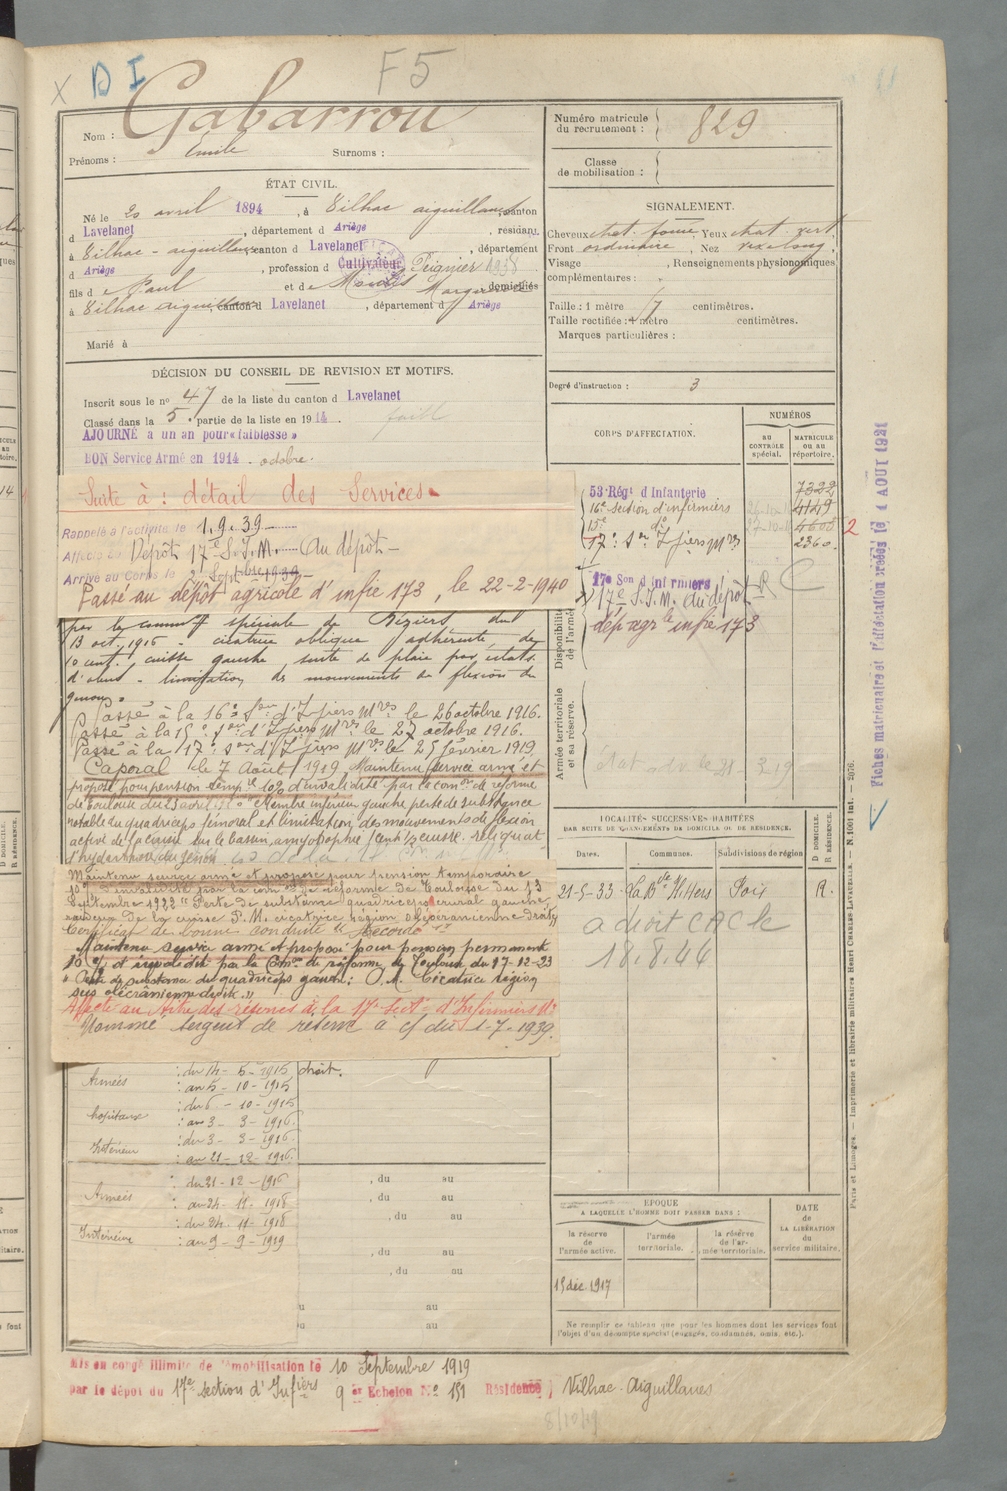 X D I F5
Nom : Gabarrou
Prénoms : Emile Surnoms :
ÉTAT CIVIL.
Né le 20 avril 1894, à Vilhac aiguillanes, canton
d Lavelanet, département d Ariège, résidant
à Vilhac - aiguillanes, canton d Lavelanet, département
d Ariège, profession d Cultivateur Peignier 1938
fils d e Paul et de domiciliés
à Vilhac aiguillanes, canton d Lavelanet, département d Ariège
Marié à
DÉCISION DU CONSEIL DE REVISION ET MOTIFS.
Inscrit sous le no 47 de la liste du canton d Lavelanet
Classé dans la 5e partie de la liste en 1914. faible
AJOURNÉ a un an pour « faiblesse »
BON Service Armé en 1914 - octobre.
Suite à : détail des Services.
Rappelé à l'activité le 1.9.39
Affecté au Dépôt 17e S.I.M. Au dépôt -
Arrivé au Corps le 2 Septbre 1939 -
Passé au dépôt agricole d'infie 173, le 22-2-1940
par la comm spéciale de Béziers du
13 oct. 1916 cicatrice oblique adhérente de
10 cent. cuisse gauche, suite de plaie par éclats
d'obus - limitation des mouvements de flexion du
genou.
Passé à la 16e Son d'Ifiers Mres le 26 octobre 1916.
Passé à la 15e Son d'Ifiers Mres le 27 octobre 1916.
Passé à la 17e Son d'Ifiers Mres le 25 février 1919
Caporal le 7 Août 1919 Maintenu service armé et
proposé pour pension temp re 10% d'invalidité par la comon de réforme
de Toulouse du 23 avril Membre inférieur gauche perte de substance
notable du quadriceps fémoral et limitation des mouvements de flexion
active de la cuisse sur le bassin, amyotrophie 1 cent 1/2 cuisse. reliquat
d'hydarthrose du genou
Maintenu service armé et proposé pour pension temporaire
10% d'invalidité par la com on de réforme de Toulouse du 13
Septembre 1922 "Perte de substance quadriceps crural gauche
au-dessus de la cuisse P.M. cicatrice région olécranienne droite
Certificat de bonne conduite "Accordé"
Maintenu service armé et proposé pour pension permanent
10% d'invalidité par la Comon de réforme de Toulouse du 17-12-23
"Perte de substance du quadriceps gauche; P.M. Cicatrice région
sus olécranienne droite."
Affecté au titre des réserves à la 17e Secton d'Infirmiers Mres
Nommé sergent de réserve à c/ du 1-7-1939.
Armées : du 14 - 5 - 1915 droit.
: au 5 - 10 - 1915
hôpitaux : du 6 - 10 - 1915
: au 3 - 3 - 1916
Intérieur : du 3 - 3 - 1916
: au 21 - 12 - 1916
Armées : du 21 - 12 - 1916 , du au
: au 24 - 11 - 1918 , du au
Intérieur : du 24 - 11 - 1918 , du au
: au 9 - 9 - 1919
, du au
, du au
u au
u au
Mis en congé illimité de démobilisation le 10 Septembre 1919
par le dépôt du 17e section d'Infiers 9e Echelon No 151 Résidence Vilhac-Aiguillanes
8/10/19
Numéro matricule du recrutement : 829
Classe de mobilisation :
SIGNALEMENT.
Cheveux chat. foncé, Yeux chat. vert
Front ordinaire, Nez rex long,
Visage , Renseignements physionomiques
complémentaires :
Taille : 1 mètre 17 centimètres.
Taille rectifiée : 1 mètre centimètres.
Marques particulières :
Degré d'instruction : 3
CORPS D'AFFECTATION.
NUMÉROS
AU CONTRÔLE spécial.
MATRICULE ou au répertoire.
53e Régt d'Infanterie 7322
16e section d'infirmiers 4149
15e do 4606 2
17e Son Ifiers Mres 2360
17e Son d'Infirmiers
17e S.I.M. Au dépôt R C
dép agrle infie 173
Disponibilité de l'armée
Armée territoriale et sa réserve.
LOCALITÉS SUCCESSIVES HABITÉES
PAR SUITE DE CHANGEMENTS DE DOMICILE OU DE RÉSIDENCE.
Dates. Communes. Subdivisions de région
D DOMICILE.
R RÉSIDENCE.
21-5-33 La Bde s/Hers Foix R.
a droit CAC le
18.8.44
ÉPOQUE
A LAQUELLE L'HOMME DOIT PASSER DANS :
la réserve de l'armée active.
l'armée territoriale.
la réserve de l'armée territoriale.
DATE de LA LIBÉRATION du service militaire.
15 déc. 1917
Ne remplir ce tableau que pour les hommes dont les services font
l'objet d'un décompte spécial (engagés, condamnés, omis, etc.).
Paris et Limoges. — Imprimerie et librairie militaires Henri CHARLES-LAVAUZELLE.
Fiches matriculaire et d'affectation visées le 4 AOUT 1921